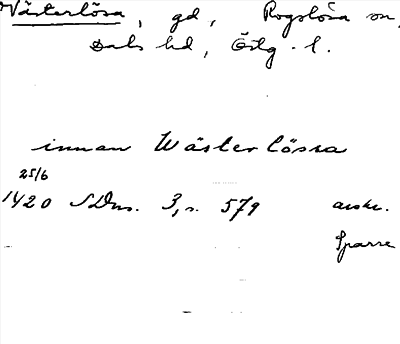 Västerlösa, gd, Rogslösa sn,
Dals hd, Östg. l.
innan Wästerlössa
25/6
1420 SDns. 3, s. 579 avskr.
Sparre